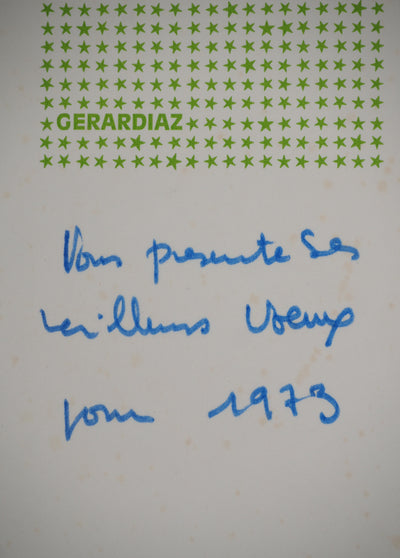 GERARDIAZ
Vous presente ses
meilleurs voeux
pour 1973